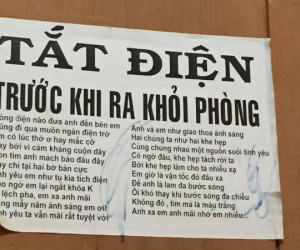 TẮT ĐIỆN
TRƯỚC KHI RA KHỎI PHÒNG
điện nào đưa anh đến bên em
đi qua muôn ngàn điện trở
có lúc thờ ơ hay mắc cỡ
bởi vì cảm kháng cuộn dây
tim anh mách bảo đâu đây
chỉ tại hai bờ bán cực
yêu em như tụ kia tích điện
ngờ em lại ngắt khóa K
lệch pha, em xa anh mãi
mấy năm ánh sáng em ơi!
yêu ta vẫn mãi rất tuyệt vời
Anh và em như giao thoa ánh sáng
Hai chúng ta như hai khe hẹp
Cùng chung nhau một nguồn suối tình yêu
Có ngờ đâu, khe hẹp tách rời ta
Bởi khe hẹp làm cho ta nhiễu xạ
Em giờ là vận tốc đó đấu xa
Để anh là lam đa bước sóng
Ôi khó thay khi bước sóng đa chiều
Không đỏ, tím mà là màu trắng
Anh xa em anh mãi nhớ em nhiều...